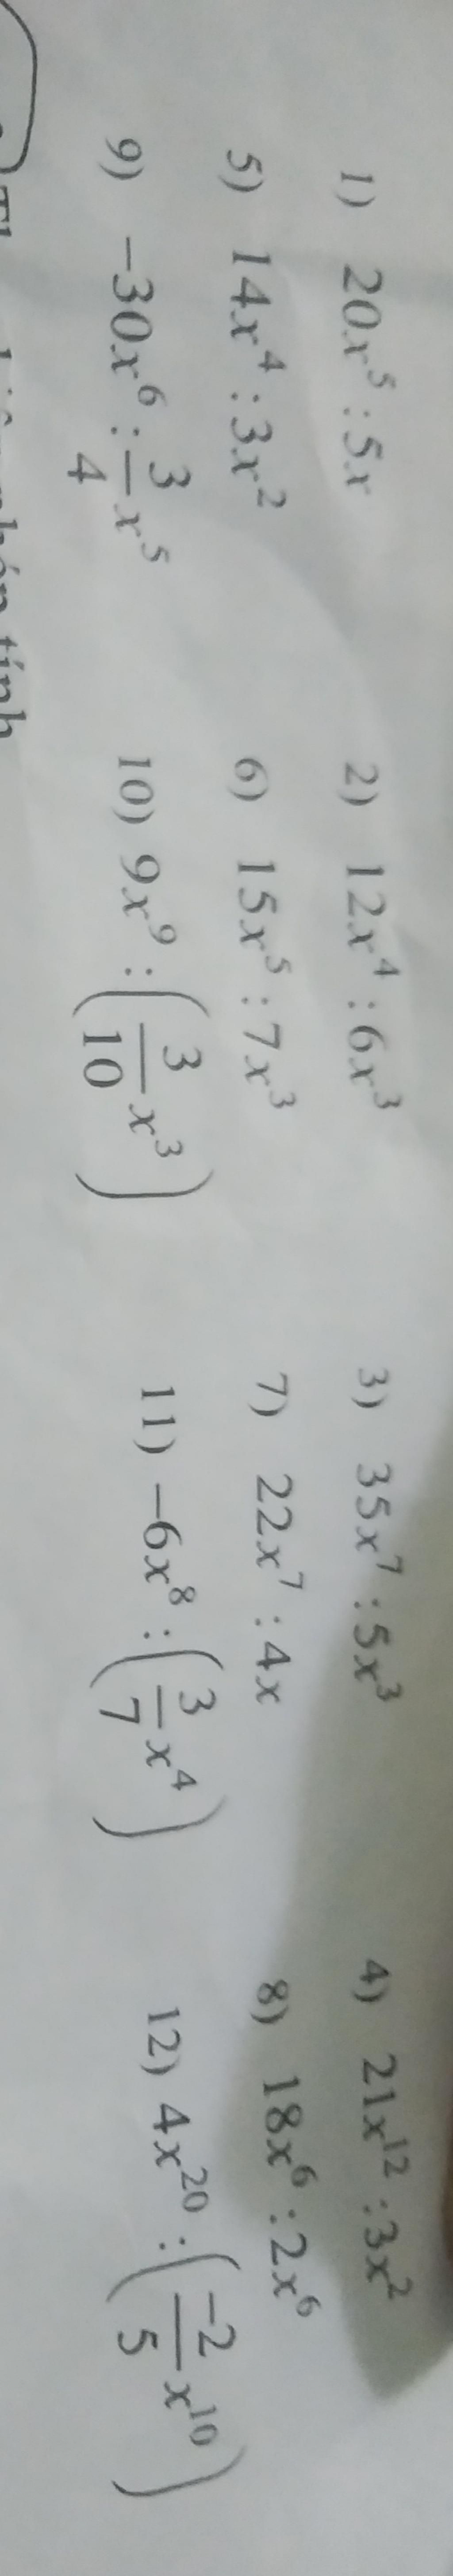 1) 20x⁵ : 5x 2) 12x⁴ : 6x³ 3) 35x⁷ : 5x³ 4) 21x¹² : 3x²
5) 14x⁴ : 3x² 6) 15x⁵ : 7x³ 7) 22x⁷ : 4x 8) 18x⁶ : 2x⁶
9) −30x⁶ : 3/4 x⁵ 10) 9x⁹ : (3/10 x³) 11) −6x⁸ : (3/7 x⁴) 12) 4x²⁰ : (−2/5 x¹⁰)
tính